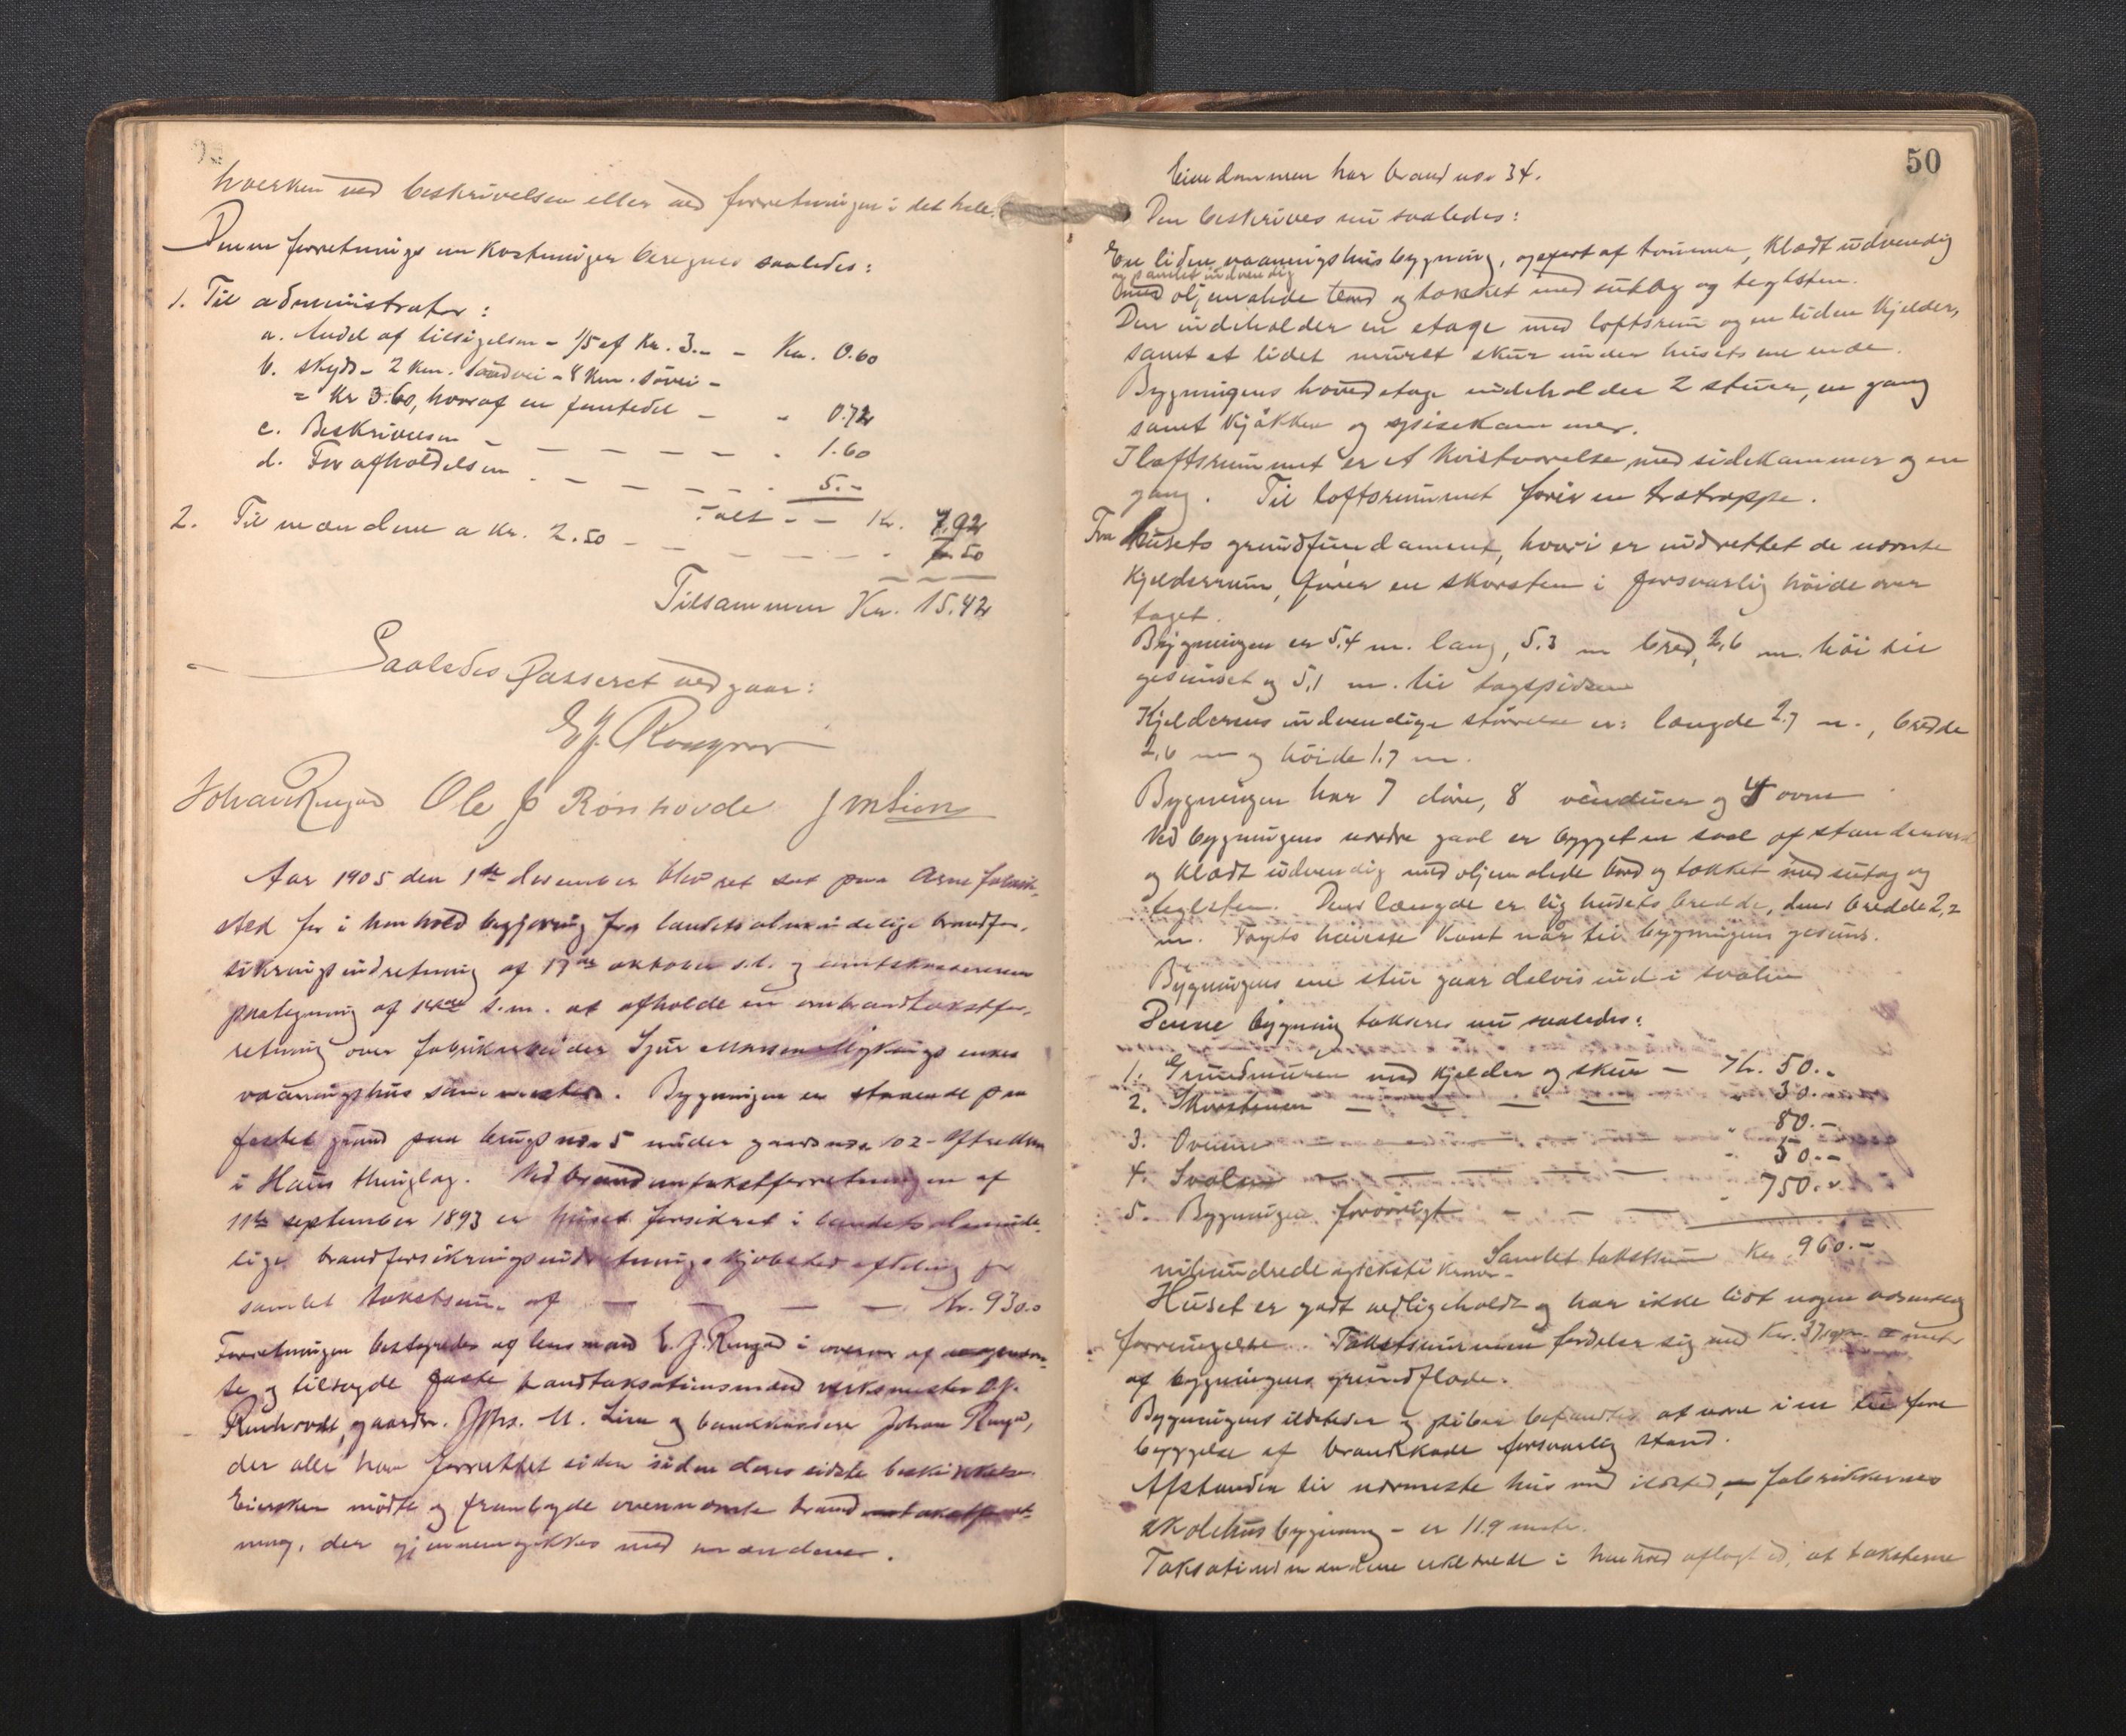 hverken ved beskrivelsen eller ved forretningen i det hele.
Denne forretnings omkostninger beregnes saaledes:
1. Til administrator:
a. Andel af tilsigelsen - 1/5 af Kr. 3.- - Kr. 0.60
b. Skyds - 2 km. landvei - 8 km. søvei -
= Kr 3.60, hvoraf en femtedel - - 0.72
c. Beskrivelsen - - - - - - 1.60
d. For afholdelsen - - - - - 5.-
Ialt - - Kr. 7.92
2. Til mændene a Kr. 2.50 - - - - - - 7.50
Tilsammen Kr. 15.42
Saaledes passeret vedgaar:
E J. Ringard
Johan Ringard Ole J Rønhovde J M Lien
Aar 1905 den 1ste desember blev ret sat paa Arne fabrik-
sted for i henhold begjæring fra landets almindelige brandfor-
sikringsindretning af 17de oktober s.a. og amtskassererens
paategning af s.m. at afholde en ombrandtakstfor-
retning over fabrikarbeider Sjur Monsen Myknings enkes
vaaningshus sammesteds. Bygningen er staaende paa
festet grund paa brugs no. 5 under gaards no. 102 - Ytre Arne
i Haus thinglag. Ved brandomtakstforretningen af
11te september 1893 er huset forsikret i landets alminde-
lige brandforsikringsindretnings kjøbstedafdeling for
samlet takstsum af - - - - Kr. 930.-
Forretningen bestyredes af lensmand E. J. Ringard i overvær af
te og tilsagde faste brandtaksationsmænd verksmester O. J.
Rønhovde, gaardbr. Johs. M. Lien og bankkasserer Johan Ringard,
der alle har forrettet eiden siden deres sidste beskikkelse.
Eiersken mødte og fremlagde ovennævnte brandomtakstforret-
ning, der gjennemgikkes med mændene.
50
Eiendommen har brand no. 34.
Den beskrives nu saaledes:
En liden vaaningshusbygning, opført af tømmer, klædt udvendig
og panelet indvendig
med oljemalede bord og tækket med sutag og teglsten.
Den indeholder en etage med loftsrum og en liden kjelder,
samt et lidet muret skur under husets ene ende.
Bygningens hovedetage indeholder 2 stuer, en gang
samt kjøkken og spisekammer.
I loftsrummet er et kvistværelse med sidekammer og en
gang. Til loftsrummet fører en trætrappe.
Fra husets grundfundament, hvori er indrettet de nævnte
kjelderrum, fører en skorsten i forsvarlig høide over
taget.
Bygningen er 5.4 m. lang, 5.3 m bred, 2,6 m. høi til
gesimset og 5,1 m. til tagspidsen
Kjelderens indvendige størrelse er: længde 2.7 m., bredde
2,6 m og høide 1.7 m.
Bygningen har 7 døre, 8 vinduer og 4 ovne
Ved bygningens nordre gavl er bygget en sval af stenderverk
og klædt udvendig med oljemalede bord og tækket med sutag og
teglsten. Dens længde er lig husets bredde, dens bredde 2,2
m. Tagets høieste kant når til bygningens gesims.
Bygningens ene stue gaar delvis ind i svalen
Denne bygning takseres nu saaledes:
1. Grundmuren med kjelder og skur - Kr. 50.-
2. Skorstenen - - - - " 30.-
3. Ovnene - - - - " 80.-
4. Svalen - - - - " 50.-
5. Bygningen forøvrigt - - - " 750.-
Samlet takstsum Kr. 960.-
nihundrede og seksti kroner -
Huset er godt vedligeholdt og har ikke lidt nogen væsentlig
forringelse. Takstsummen fordeler sig med Kr. pr. □ meter
af bygningens grundflade.
Bygningens ildsteder og piber befandtes at være i en til fore
byggelse af brandskade forsvarlig stand.
Afstanden til nærmeste hus med ildsted, - fabrikkernes
skolehusbygning - er 11.9 meter.
Taksationsmændene erklærede i henhold aflagt ed, at taksterne